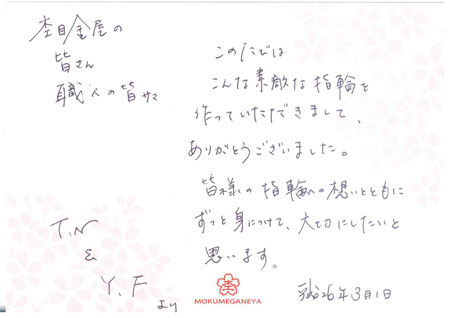 杢目金屋の
皆さん
職人の皆サマ
このたびは
こんな素敵な指輪を
作っていただきまして、
ありがとうございました。
皆様の指輪への想いとともに
ずっと身につけて、大切にしたいと
思います。
T.N
&
Y.F
より
杢
MOKUMEGANEYA
平成26年3月1日